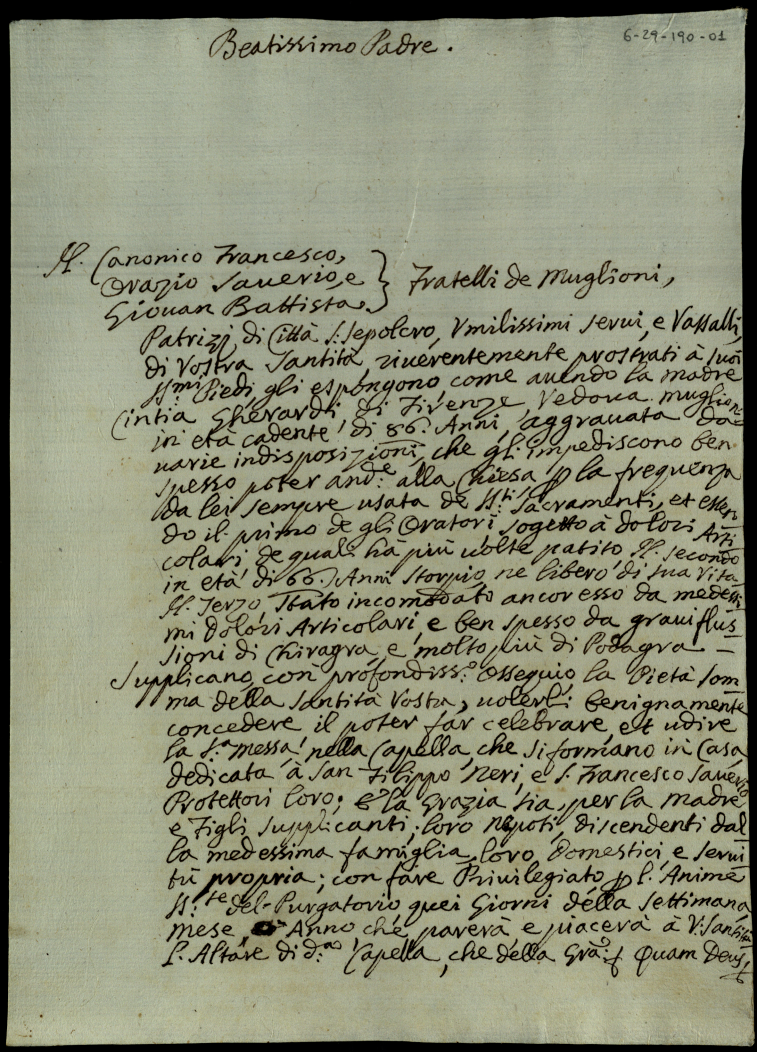 6-29-190-01
Beatissimo Padre.
Il Canonico Francesco,
Orazio Saverio, e
Giovan Battista
Fratelli de Muglioni,
Patrizj di Città S: Sepolcro, Umilissimi servi, e Vassalli,
di Vostra Santità, riverentemente prostrati à suoi
ss:mi Piedi gli espongono come avendo la madre
Cintia Gherardi di Firenze Vedova Muglioni
in età cadente di 86: Anni, aggravata da
varie indisposizioni, che gli impediscono ben
spesso poter and:e alla Chiesa p la frequenza
da lei sempre usata de SS:ti Sacramenti, et essen
do il primo de gli Oratori sogetto à dolori Arti
colari de quali hà più volte patito Il secondo
in età di 66: Anni storpio, ne libero di sua Vita
Il Terzo stato incomodato ancor esso da medessi
mi dolori Articolari, e ben spesso da gravi flus
sioni di Chiragra, e molto più di Podagra –
Supplicano con profondiss:o Ossequio la Pietà som
ma della Santità Vostra, volerli benignamente
concedere il poter far celebrare, et udire
la S:a Messa nella Capella, che si formano in Casa
dedicata à San Filippo Neri, e S. Francesco Saverio
Protettori loro; e la Grazia sia, per la madre
e Figli supplicanti, loro nepoti, discendenti dal
la medessima famiglia, loro domestici, e servi
tù propria; con fare Privilegiato p l'Anime
SS:te del Purgatorio quei Giorni della settimana,
mese Anno che parerà e piacerà à V: Santità
l'Altare di d:a Capella, che della Grã: Quam Deus